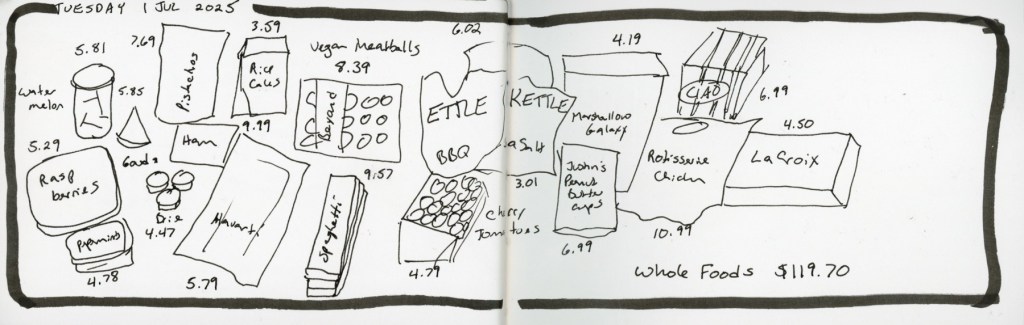 TUESDAY 1 JUL 2025
5.81
7.69
3.59
6.02
4.19
water
melon
5.85
Pistachios
Rice
Cakes
Vegan Meatballs
8.39
Beyond
ETTLE
KETTLE
BBQ
Sea Salt
Marshmallow
Galaxy
6.99
4.50
5.29
Rasp
berries
Gouda
Ham
9.99
Havarti
9.57
Spaghetti
3.01
Cherry
Tomatoes
Justin's
Peanut
butter
cups
Rotisserie
Chicken
La Croix
Brie
4.47
4.78
5.79
4.79
6.99
10.99
Whole Foods $119.70